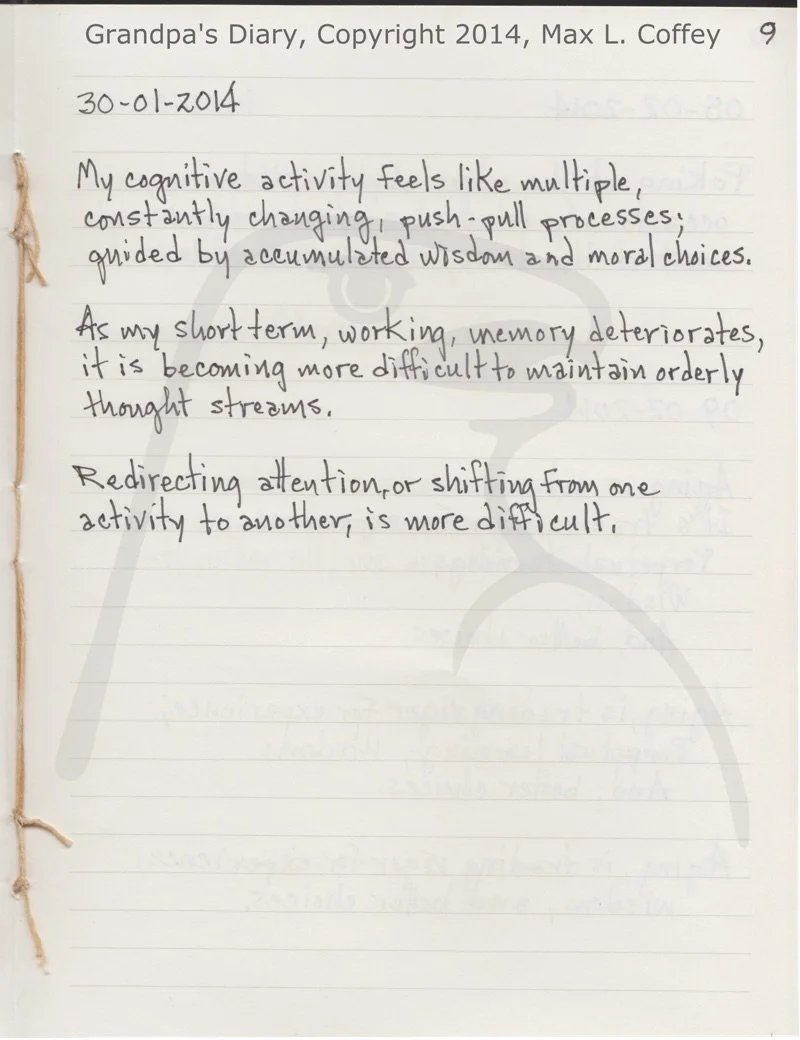 Grandpa's Diary, Copyright 2014, Max L. Coffey 9
30-01-2014
My cognitive activity feels like multiple,
constantly changing, push-pull processes;
guided by accumulated wisdom and moral choices.
As my short term, working, memory deteriorates,
it is becoming more difficult to maintain orderly
thought streams.
Redirecting attention, or shifting from one
activity to another, is more difficult.